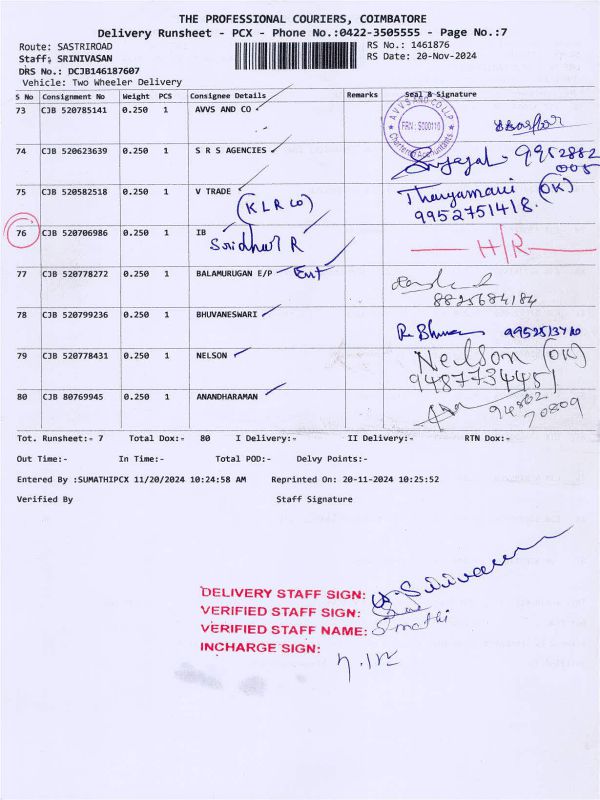 THE PROFESSIONAL COURIERS, COIMBATORE
Delivery Runsheet - PCX - Phone No.:0422-3505555 - Page No.:7
Route: SASTRIROAD RS No.: 1461876
Staff: SRINIVASAN RS Date: 20-Nov-2024
DRS No.: DCJB146187607
Vehicle: Two Wheeler Delivery
S No Consignment No Weight PCS Consignee Details Remarks Seal & Signature
73 CJB 520785141 0.250 1 AVVS AND CO
AVVS AND CO LLP
FRN: S000110
Chartered Accountants
74 CJB 520623639 0.250 1 S R S AGENCIES 9952882
005
75 CJB 520582518 0.250 1 V TRADE Thangamani (OK)
(KLR Co) 9952751418.
76 CJB 520706986 0.250 1 IB H/R
Sridhar R
77 CJB 520778272 0.250 1 BALAMURUGAN E/P Ent
8825684184
78 CJB 520799236 0.250 1 BHUVANESWARI
79 CJB 520778431 0.250 1 NELSON Nelson (OK)
9487734451
80 CJB 80769945 0.250 1 ANANDHARAMAN 94862
70809
Tot. Runsheet:- 7 Total Dox:- 80 I Delivery:- II Delivery:- RTN Dox:-
Out Time:- In Time:- Total POD:- Delvy Points:-
Entered By :SUMATHIPCX 11/20/2024 10:24:58 AM Reprinted On: 20-11-2024 10:25:52
Verified By Staff Signature
DELIVERY STAFF SIGN: Srinivasan
VERIFIED STAFF SIGN:
VERIFIED STAFF NAME: Smathi
INCHARGE SIGN: